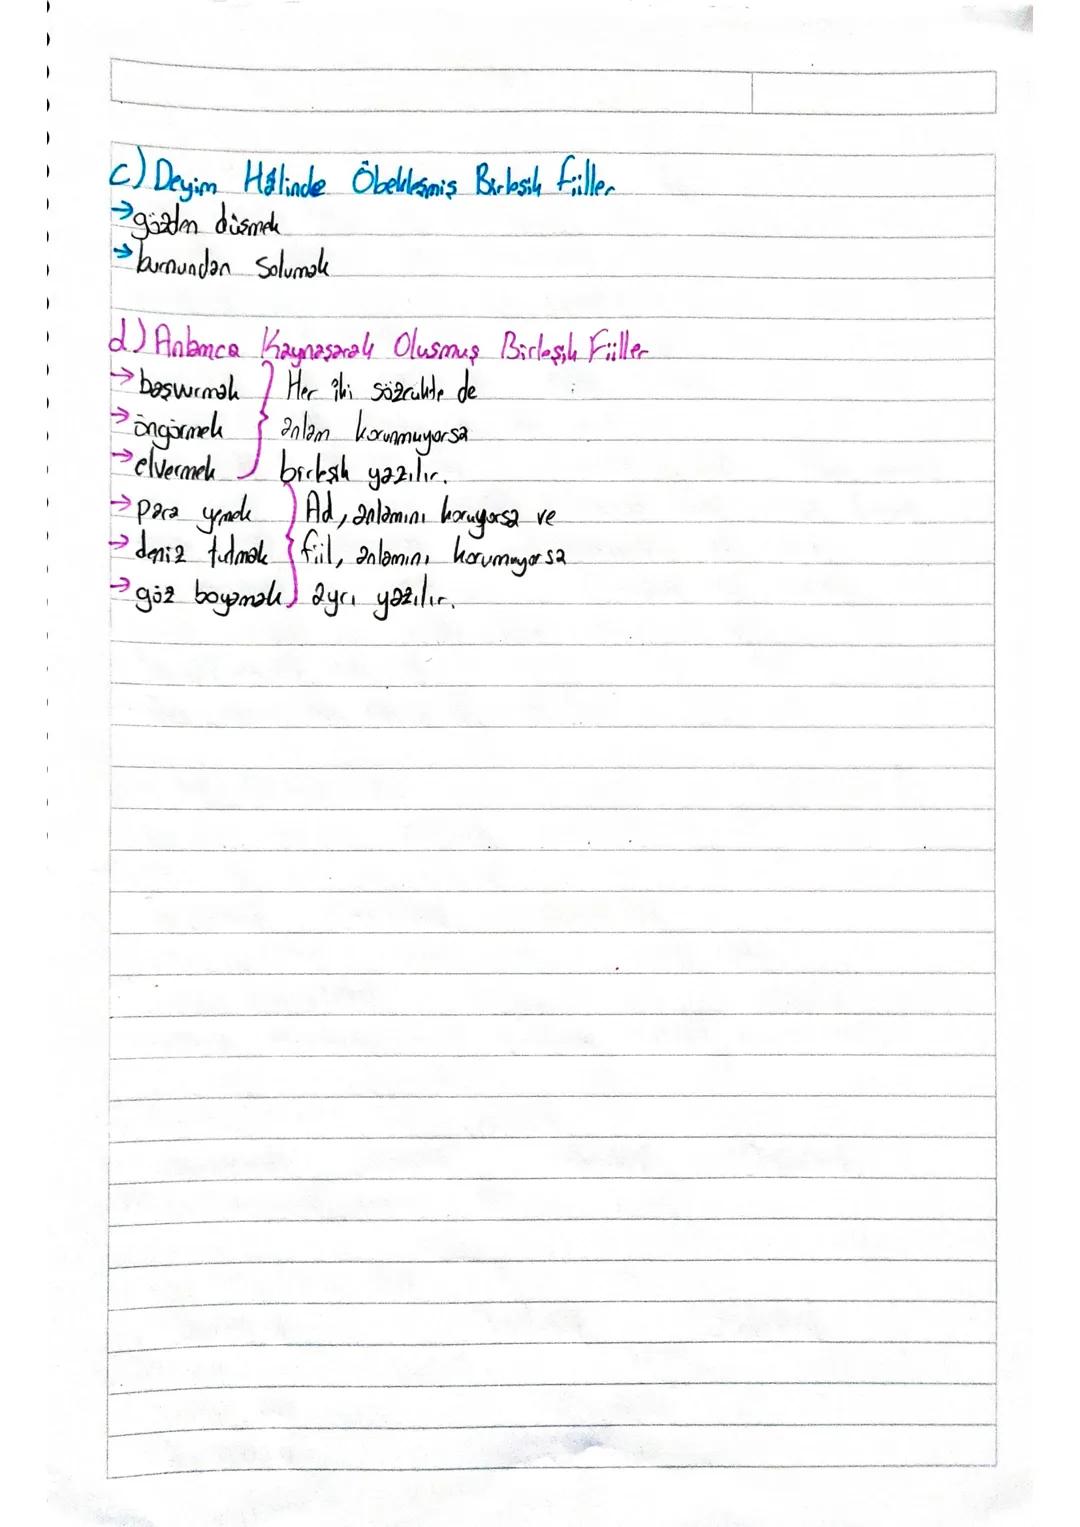 c) Deyim Hâlinde Öbekleşmiş Birleşik Fiiller
→ gözden düşmek
→ burnundan solumak
d) Anlamca Kaynaşarak Oluşmuş Birleşik Fiiller
→ başvurmak } Her iki sözcükte de
→ öngörmek anlam korunmuyorsa
→ elvermek birleşik yazılır.
→ para yemek } Ad, anlamını koruyorsa ve
→ deniz tutmak fiil, anlamını korumuyorsa
→ göz boyamak ayrı yazılır.